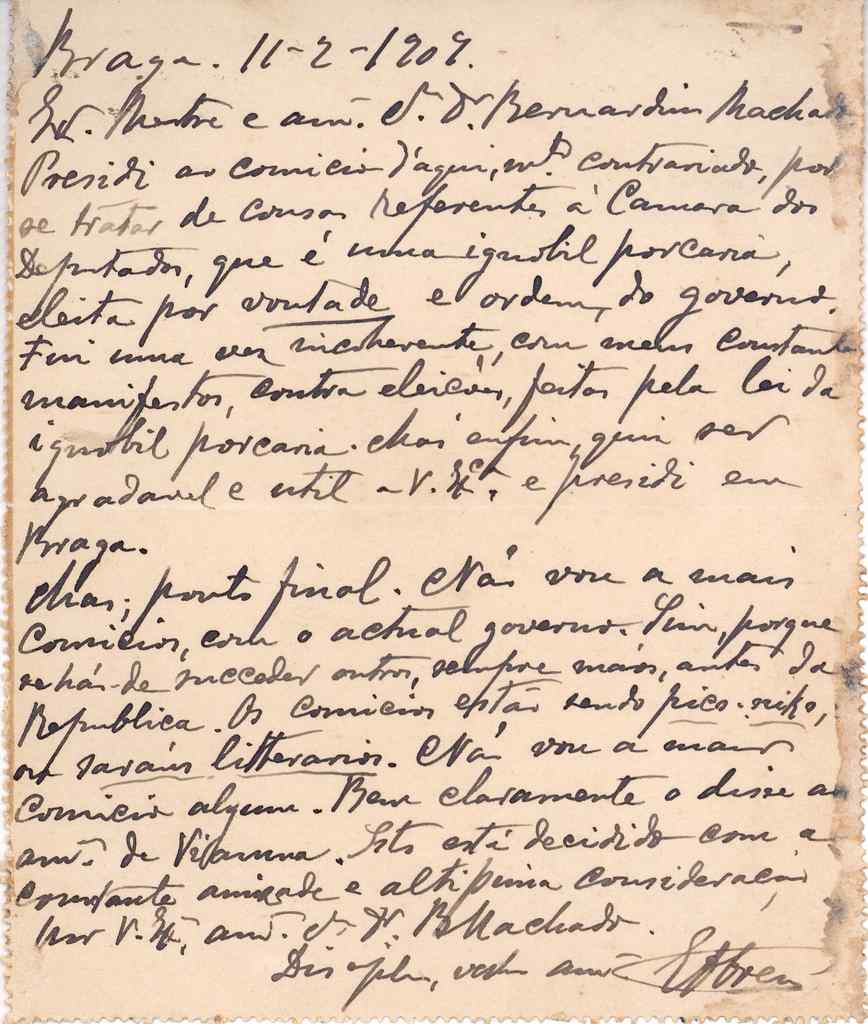 Braga. 11-2-1909.
Ex. Mestre e am.º S. Dr. Bernardino Machado
Presidi ao comicio d'aqui, m.to contrariado, por
se tratar de cousas referentes à Camara dos
Deputados, que é uma ignobil porcaria,
eleita por vontade e ordem, do governo.
Fui uma vez incoherente, com meus constantes
manifestos, contra eleições, feitas pela lei da
ignobil porcaria. Mas enfim, quiz ser
agradavel e util a V. Ex.ª e presidi em
Braga.
Mas, ponto final. Não vou a mais
comicios, com o actual governo. Sim, porque
se hás-de succeder outros, sempre maos, antes da
Republica. Os comicios estão sendo pics-niks,
ou saraus litterarios. Não vou a mais
comicio algum. Bem claramente o disse ao
am.º de Vianna. Isto está decidido com a
constante amizade e altissima consideração
por V. Ex.ª, am.º S. Dr. B. Machado.
Discip.lo, vosso am.º